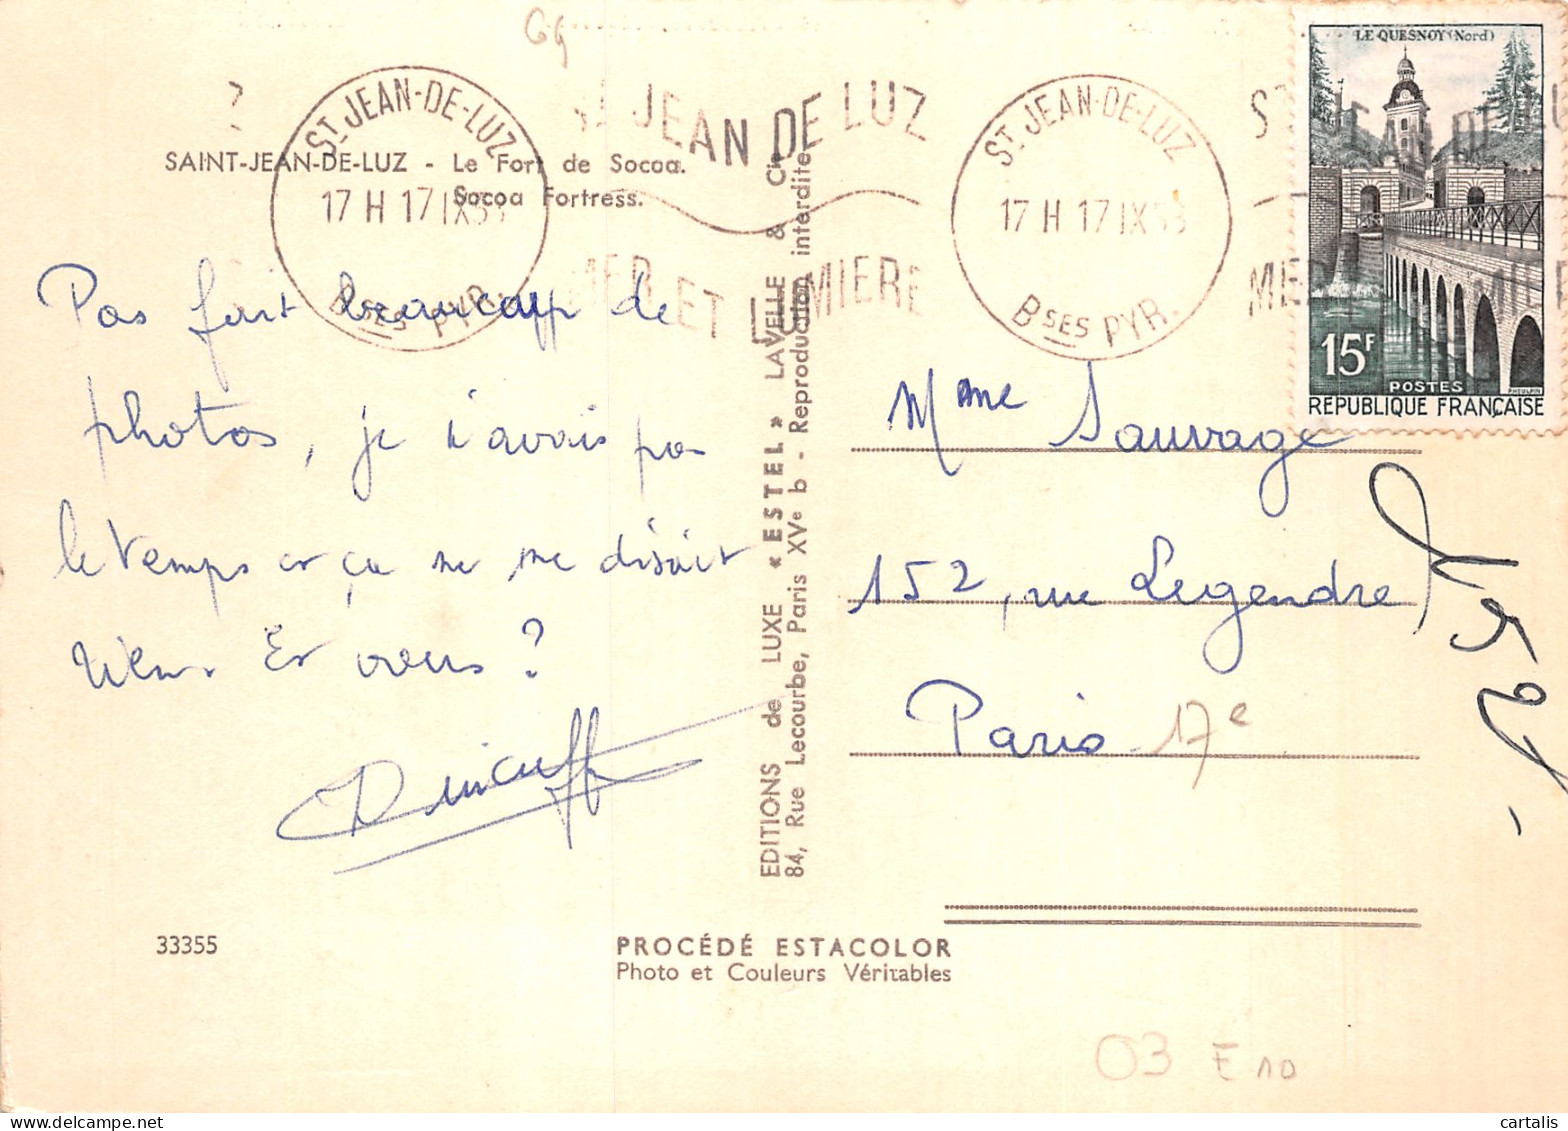 Gg
ST JEAN-DE-LUZ
17 H 17 IX 53
BSES PYR.
ST JEAN DE LUZ
MER ET LUMIERE
ST JEAN-DE-LUZ
17 H 17 IX 53
BSES PYR.
LE QUESNOY (Nord)
15F
POSTES
RÉPUBLIQUE FRANÇAISE
SAINT-JEAN-DE-LUZ - Le Fort de Socoa.
Socoa Fortress.
Pas fait beaucoup de
photos, je n'avais pas
le temps et ça ne me disait
rien. Et vous ?
EDITIONS de LUXE « ESTEL » LAVELLE & Cie
84, Rue Lecourbe, Paris XVe b - Reproduction interdite
Mme Sauvage
152, rue Legendre
Paris 17e
33355
PROCÉDÉ ESTACOLOR
Photo et Couleurs Véritables
03 E 10
cartalis